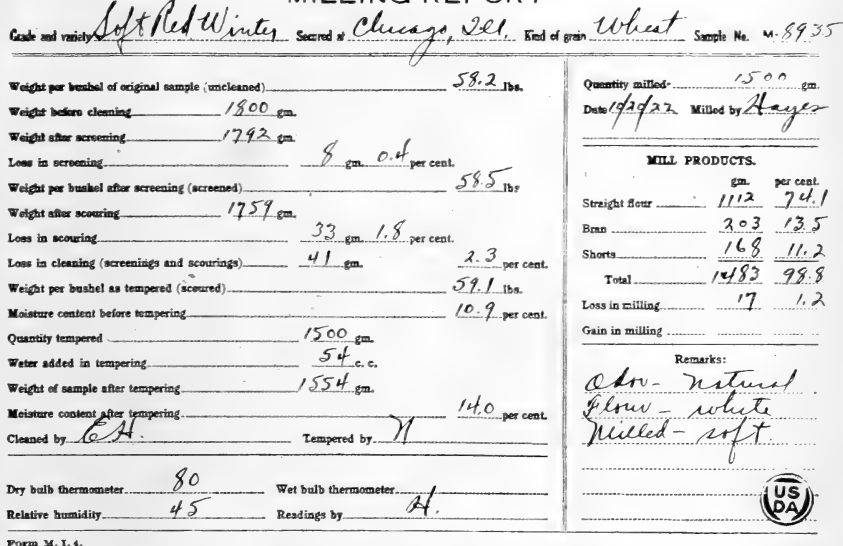 MILLING REPORT
Grade and variety Soft Red Winter Secured at Chicago, Ill. Kind of grain Wheat Sample No. M-8935
Weight per bushel of original sample (uncleaned) 58.2 lbs.
Weight before cleaning 1800 gm.
Weight after screening 1792 gm.
Loss in screening 8 gm. 0.4 per cent.
Weight per bushel after screening (screened) 58.5 lbs
Weight after scouring 1759 gm.
Loss in scouring 33 gm. 1.8 per cent.
Loss in cleaning (screenings and scourings) 41 gm. 2.3 per cent.
Weight per bushel as tempered (scoured) 59.1 lbs.
Moisture content before tempering 10.9 per cent.
Quantity tempered 1500 gm.
Water added in tempering 54 c. c.
Weight of sample after tempering 1554 gm.
Moisture content after tempering 14.0 per cent.
Cleaned by E.H. Tempered by N
Dry bulb thermometer 80 Wet bulb thermometer
Relative humidity 45 Readings by H.
Form M. I. 4.
Quantity milled 1500 gm.
Date 10/20/22 Milled by Hayes
MILL PRODUCTS.
gm. per cent.
Straight flour 1112 74.1
Bran 203 13.5
Shorts 168 11.2
Total 1483 98.8
Loss in milling 17 1.2
Gain in milling
Remarks:
Odor - natural
Flour - white
Milled - soft
US
DA